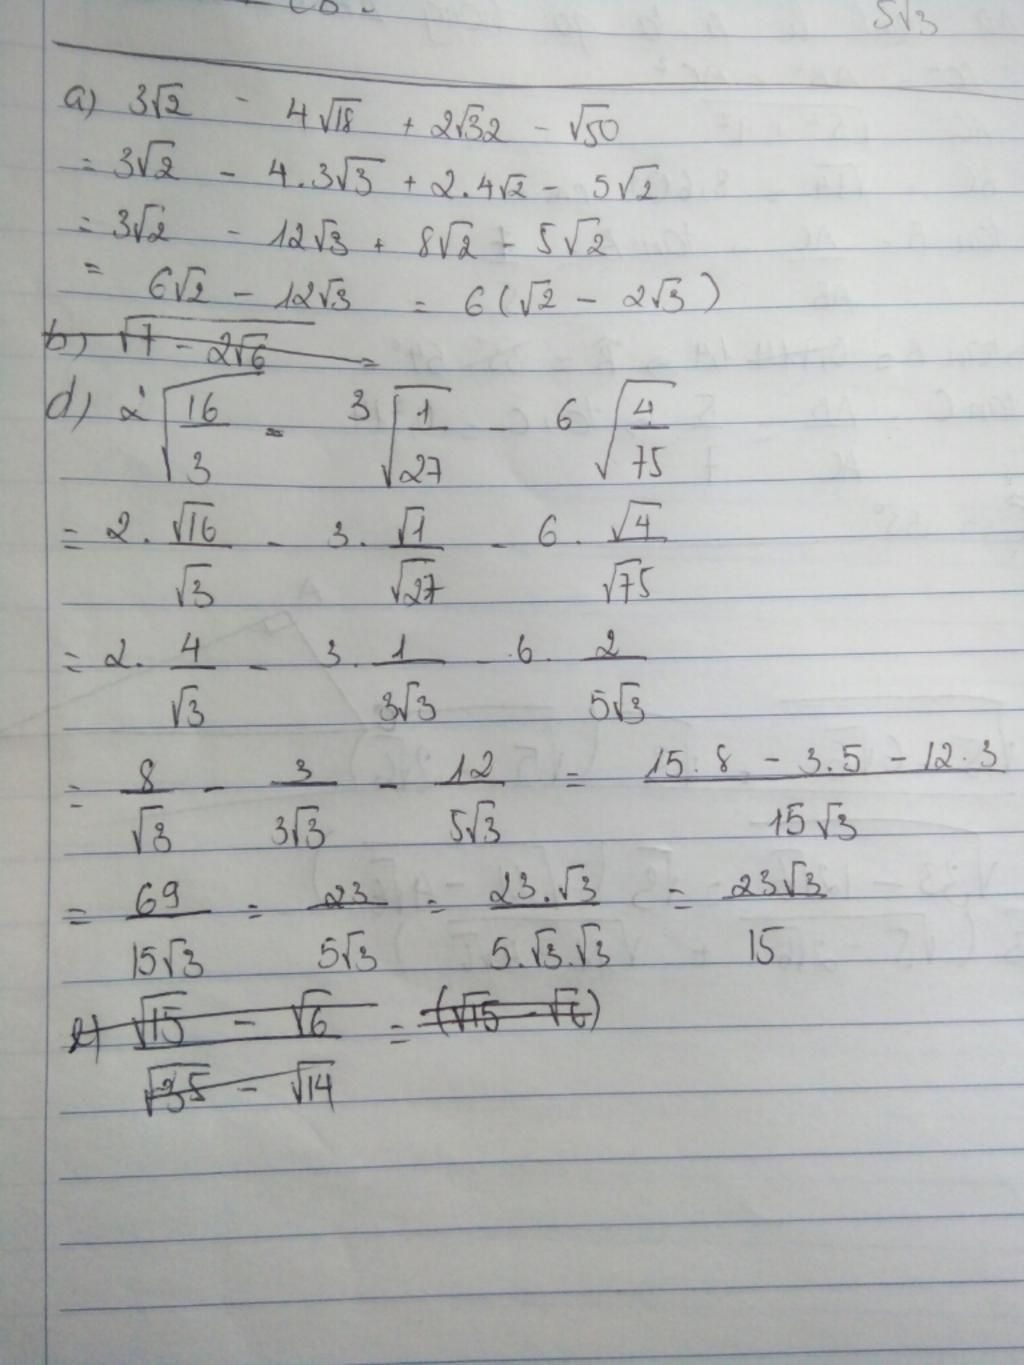 5√3
a) 3√2 - 4√18 + 2√32 - √50
= 3√2 - 4.3√3 + 2.4√2 - 5√2
= 3√2 - 12√3 + 8√2 - 5√2
= 6√2 - 12√3 = 6(√2 - 2√3)
b) √7 - 2√6 =
d) 2√16/3 - 3√1/27 - 6√4/75
= 2. √16/√3 - 3. √1/√27 - 6. √4/√75
= 2. 4/√3 - 3. 1/3√3 - 6. 2/5√3
= 8/√3 - 3/3√3 - 12/5√3 = 15.8 - 3.5 - 12.3/15√3
= 69/15√3 = 23/5√3 = 23.√3/5.√3.√3 = 23√3/15
√15 - √6/√35 - √14 = (√15 - √6)